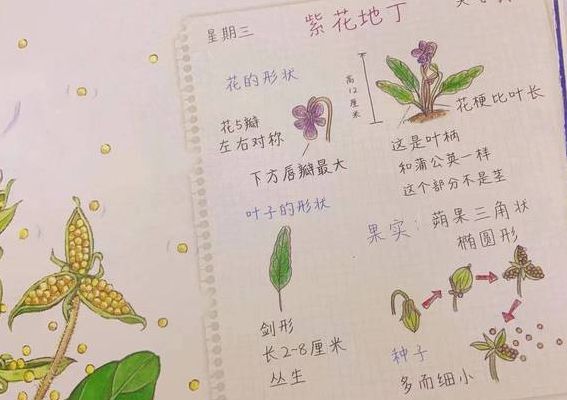 星期三
紫花地丁
花的形状
花5瓣
左右对称
下方唇瓣最大
高12厘米
花梗比叶长
这是叶柄
和蒲公英一样
这个部分不是茎
叶子的形状
剑形
长2-8厘米
丛生
果实：蒴果三角状
椭圆形
种子
多而细小